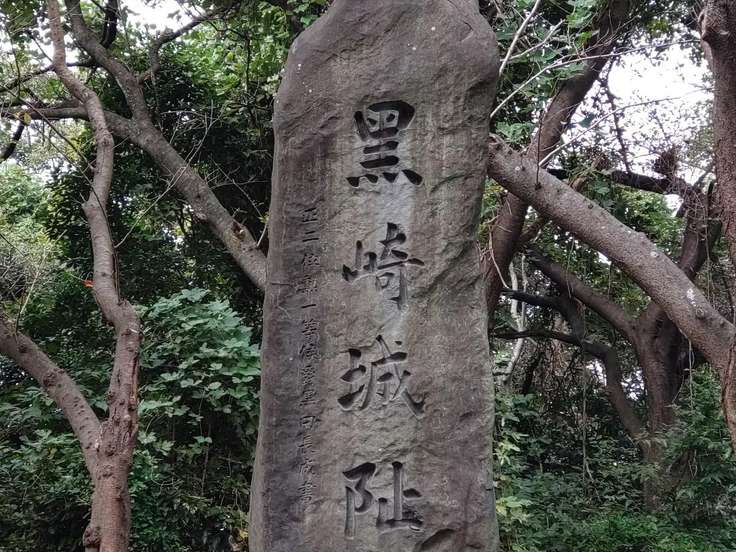 黒崎城址
正二位勲一等侯爵黒田長成書